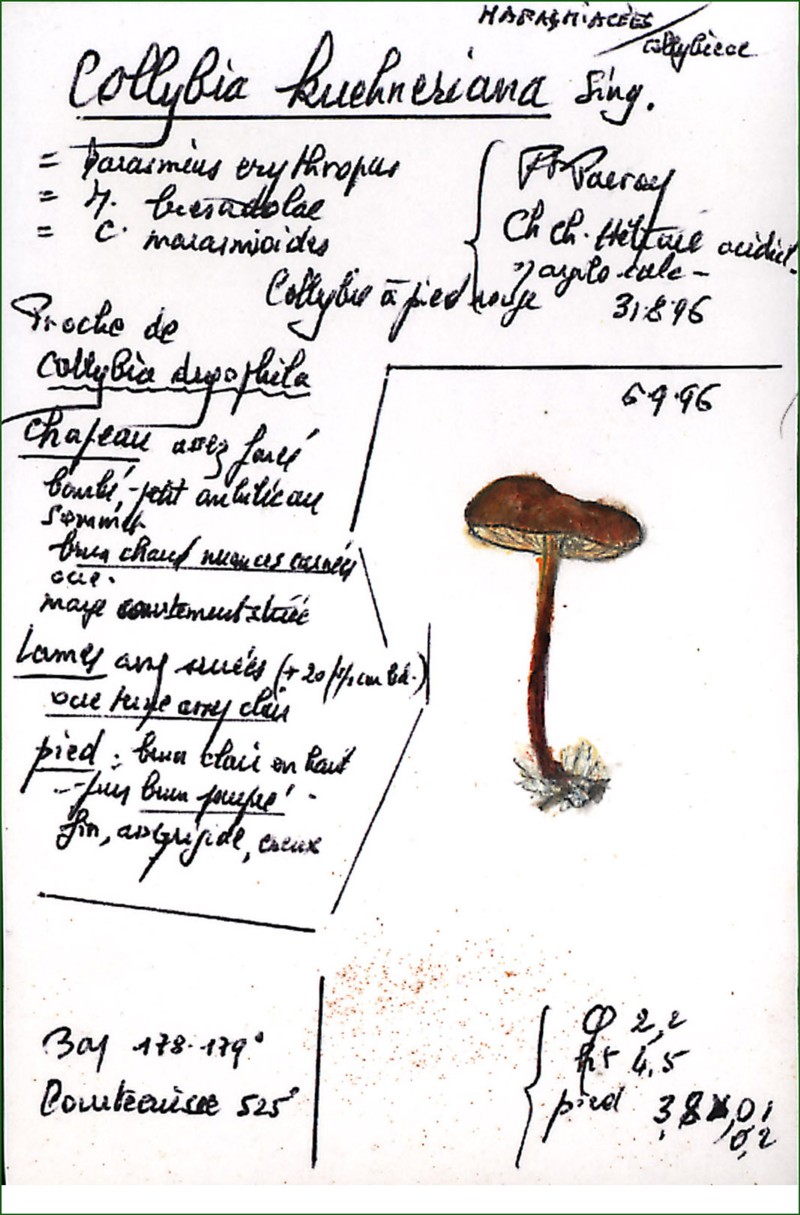 MARASMIACÉES
Collybieae
Collybia kuehneriana Sing.
= Marasmius erythropus
= M. bresadolae
= C. marasmioides
Collybie à pied rouge
Ch ch. acidicl.
argilo calc -
31.8.96
Proche de
Collybia dryophila
6.9.96
chapeau assez foncé
bombé, petit ombilic au
sommet
brun chaud nuances carnées
ocre.
marge courtement striée
Lames assez serrées
ocre terne assez clair
pied : brun clair en haut
puis brun pourpré
fin, assez rigide, creux
Bof 178-179°
Courtecuisse 525°
Ø 2,2
ht 4,5
pied 3,8 0,1
0,2